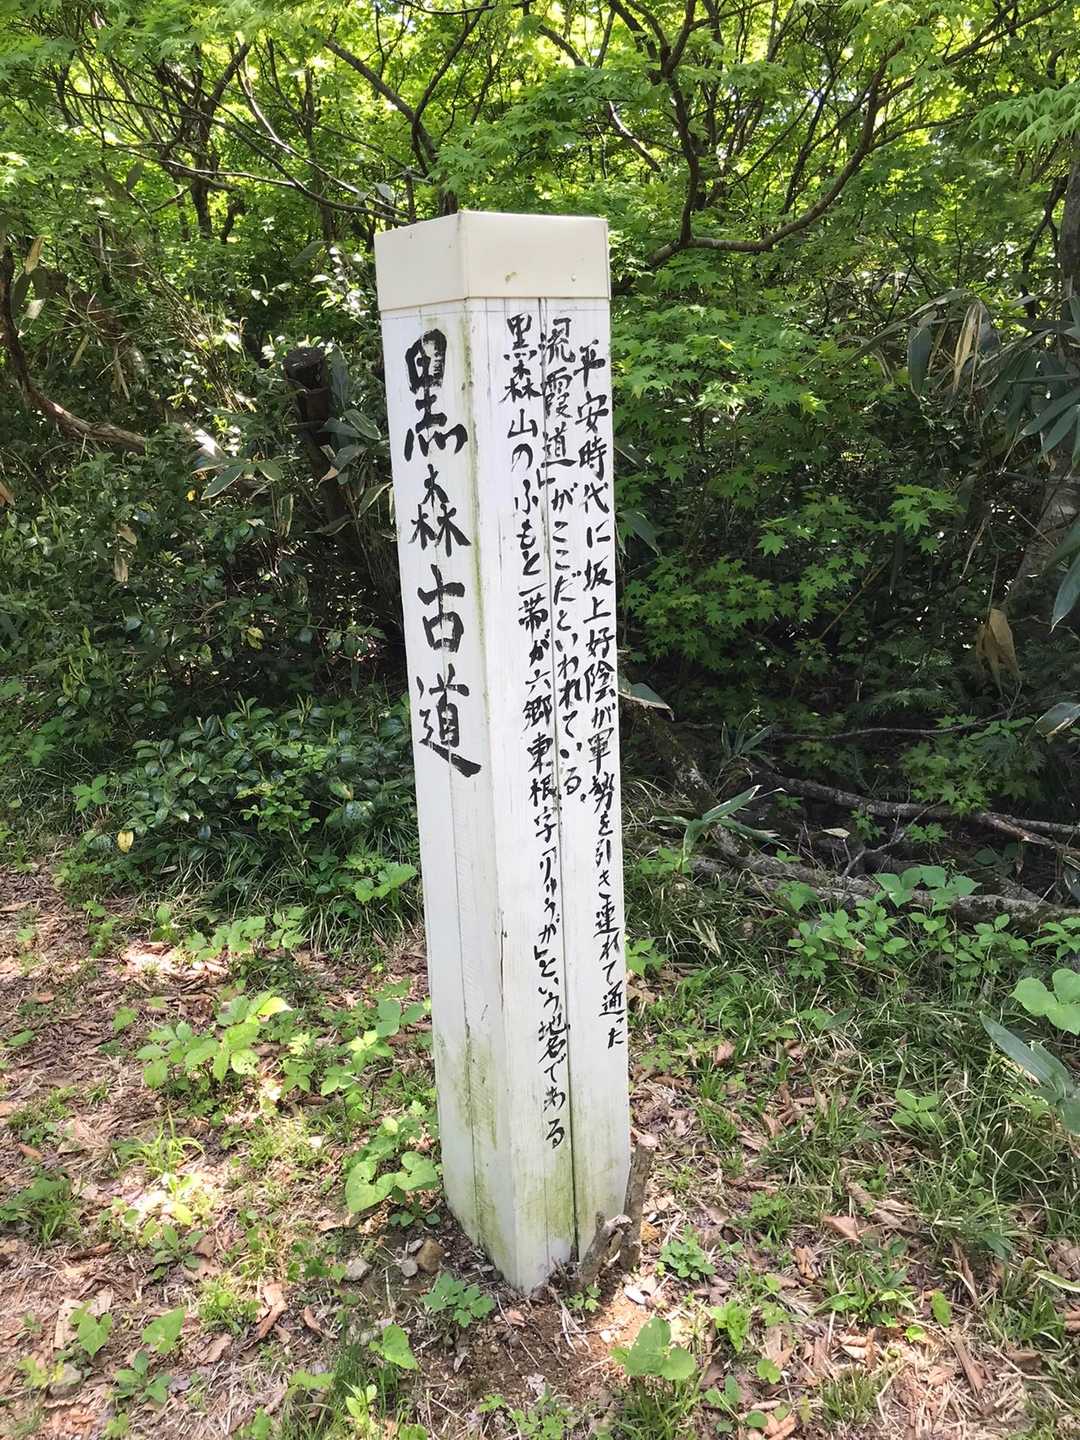 黒森古道
平安時代に坂上好陰が軍勢を引き連れて通った
「流霞道」がここだといわれている。
黒森山のふもと一帯が六郷東根字「りゅうがい」という地名である